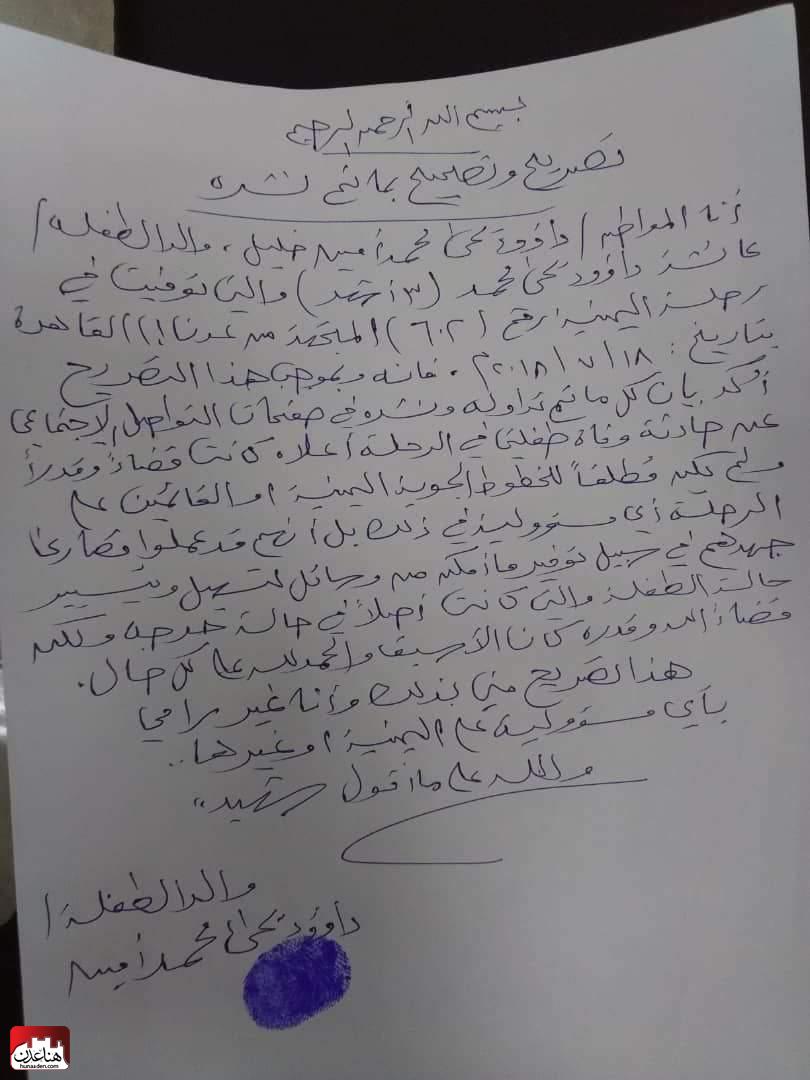 بسم الله الرحمن الرحيم
تصريح وتصحيح بما تم نشره
أنا المواطن / داؤود يحيى محمد أمين خليل ، والد الطفلة /
عائشة داؤود يحيى محمد (٣ أشهر) والتي توفيت في
رحلة اليمنية رقم (٦٠٢) المتجهة من عدن إلى القاهرة
بتاريخ : ١٨ / ٧ / ٢٠١٨م ، فانه وبموجب هذا التصريح
أؤكد بان كل ما تم تداوله ونشره في صفحات التواصل الإجتماعي
عن حادثة وفاة طفلتي في الرحلة أعلاه كانت قضاءً وقدراً
ولم يكن مُطلقاً للخطوط الجوية اليمنية او القائمين على
الرحلة أي مسؤولية في ذلك بل أنهم قد عملوا قصارى
جهدهم في سبيل توفير ما أمكن من وسائل لتسهيل وتيسير
حالة الطفلة والتي كانت أصلاً في حالة حرجه ولكن
قضاء الله وقدره كان الأسبق والحمدلله على كل حال .
هذا تصريح مني بذلك وأنا غير رامي
بأي مسؤولية على اليمنية او غيرها ..
والله على ما أقول شهيد ،،
والد الطفلة /
داؤود يحيى محمد أمين
هنا عدن
hunaaden.com